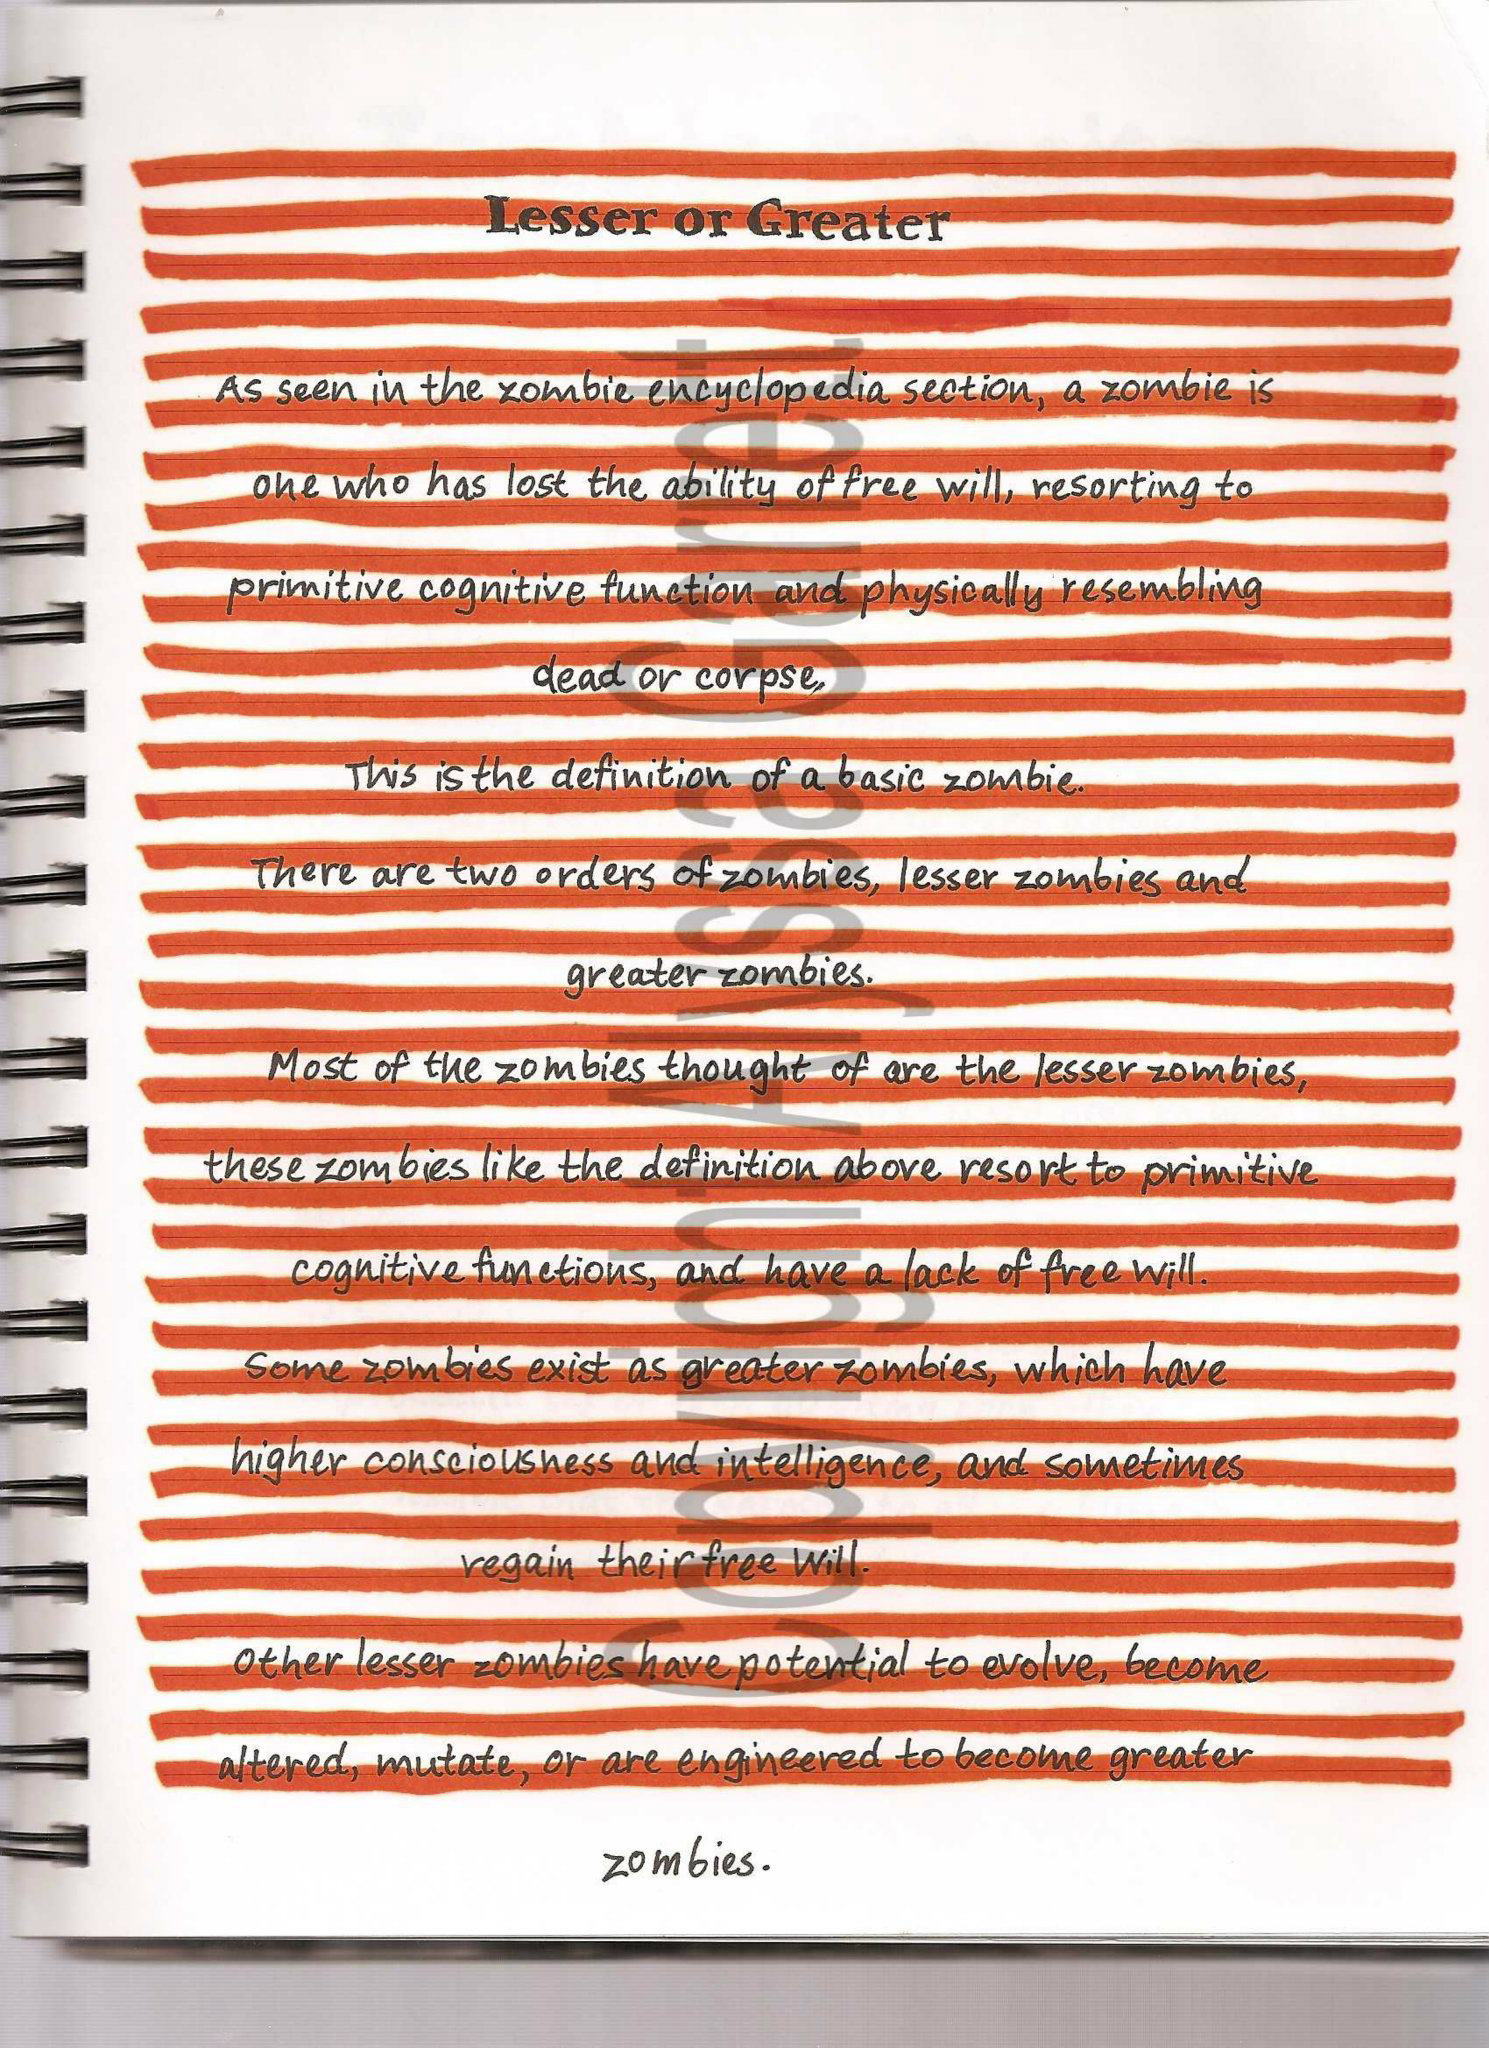 Lesser or Greater
As seen in the zombie encyclopedia section, a zombie is
one who has lost the ability of free will, resorting to
primitive cognitive function and physically resembling
dead or corpse,
This is the definition of a basic zombie.
There are two orders of zombies, lesser zombies and
greater zombies.
Most of the zombies thought of are the lesser zombies,
these zombies like the definition above resort to primitive
cognitive functions, and have a lack of free will.
Some zombies exist as greater zombies, which have
higher consciousness and intelligence, and sometimes
regain their free will.
Other lesser zombies have potential to evolve, become
altered, mutate, or are engineered to become greater
zombies.
Copyright Alysa Garet